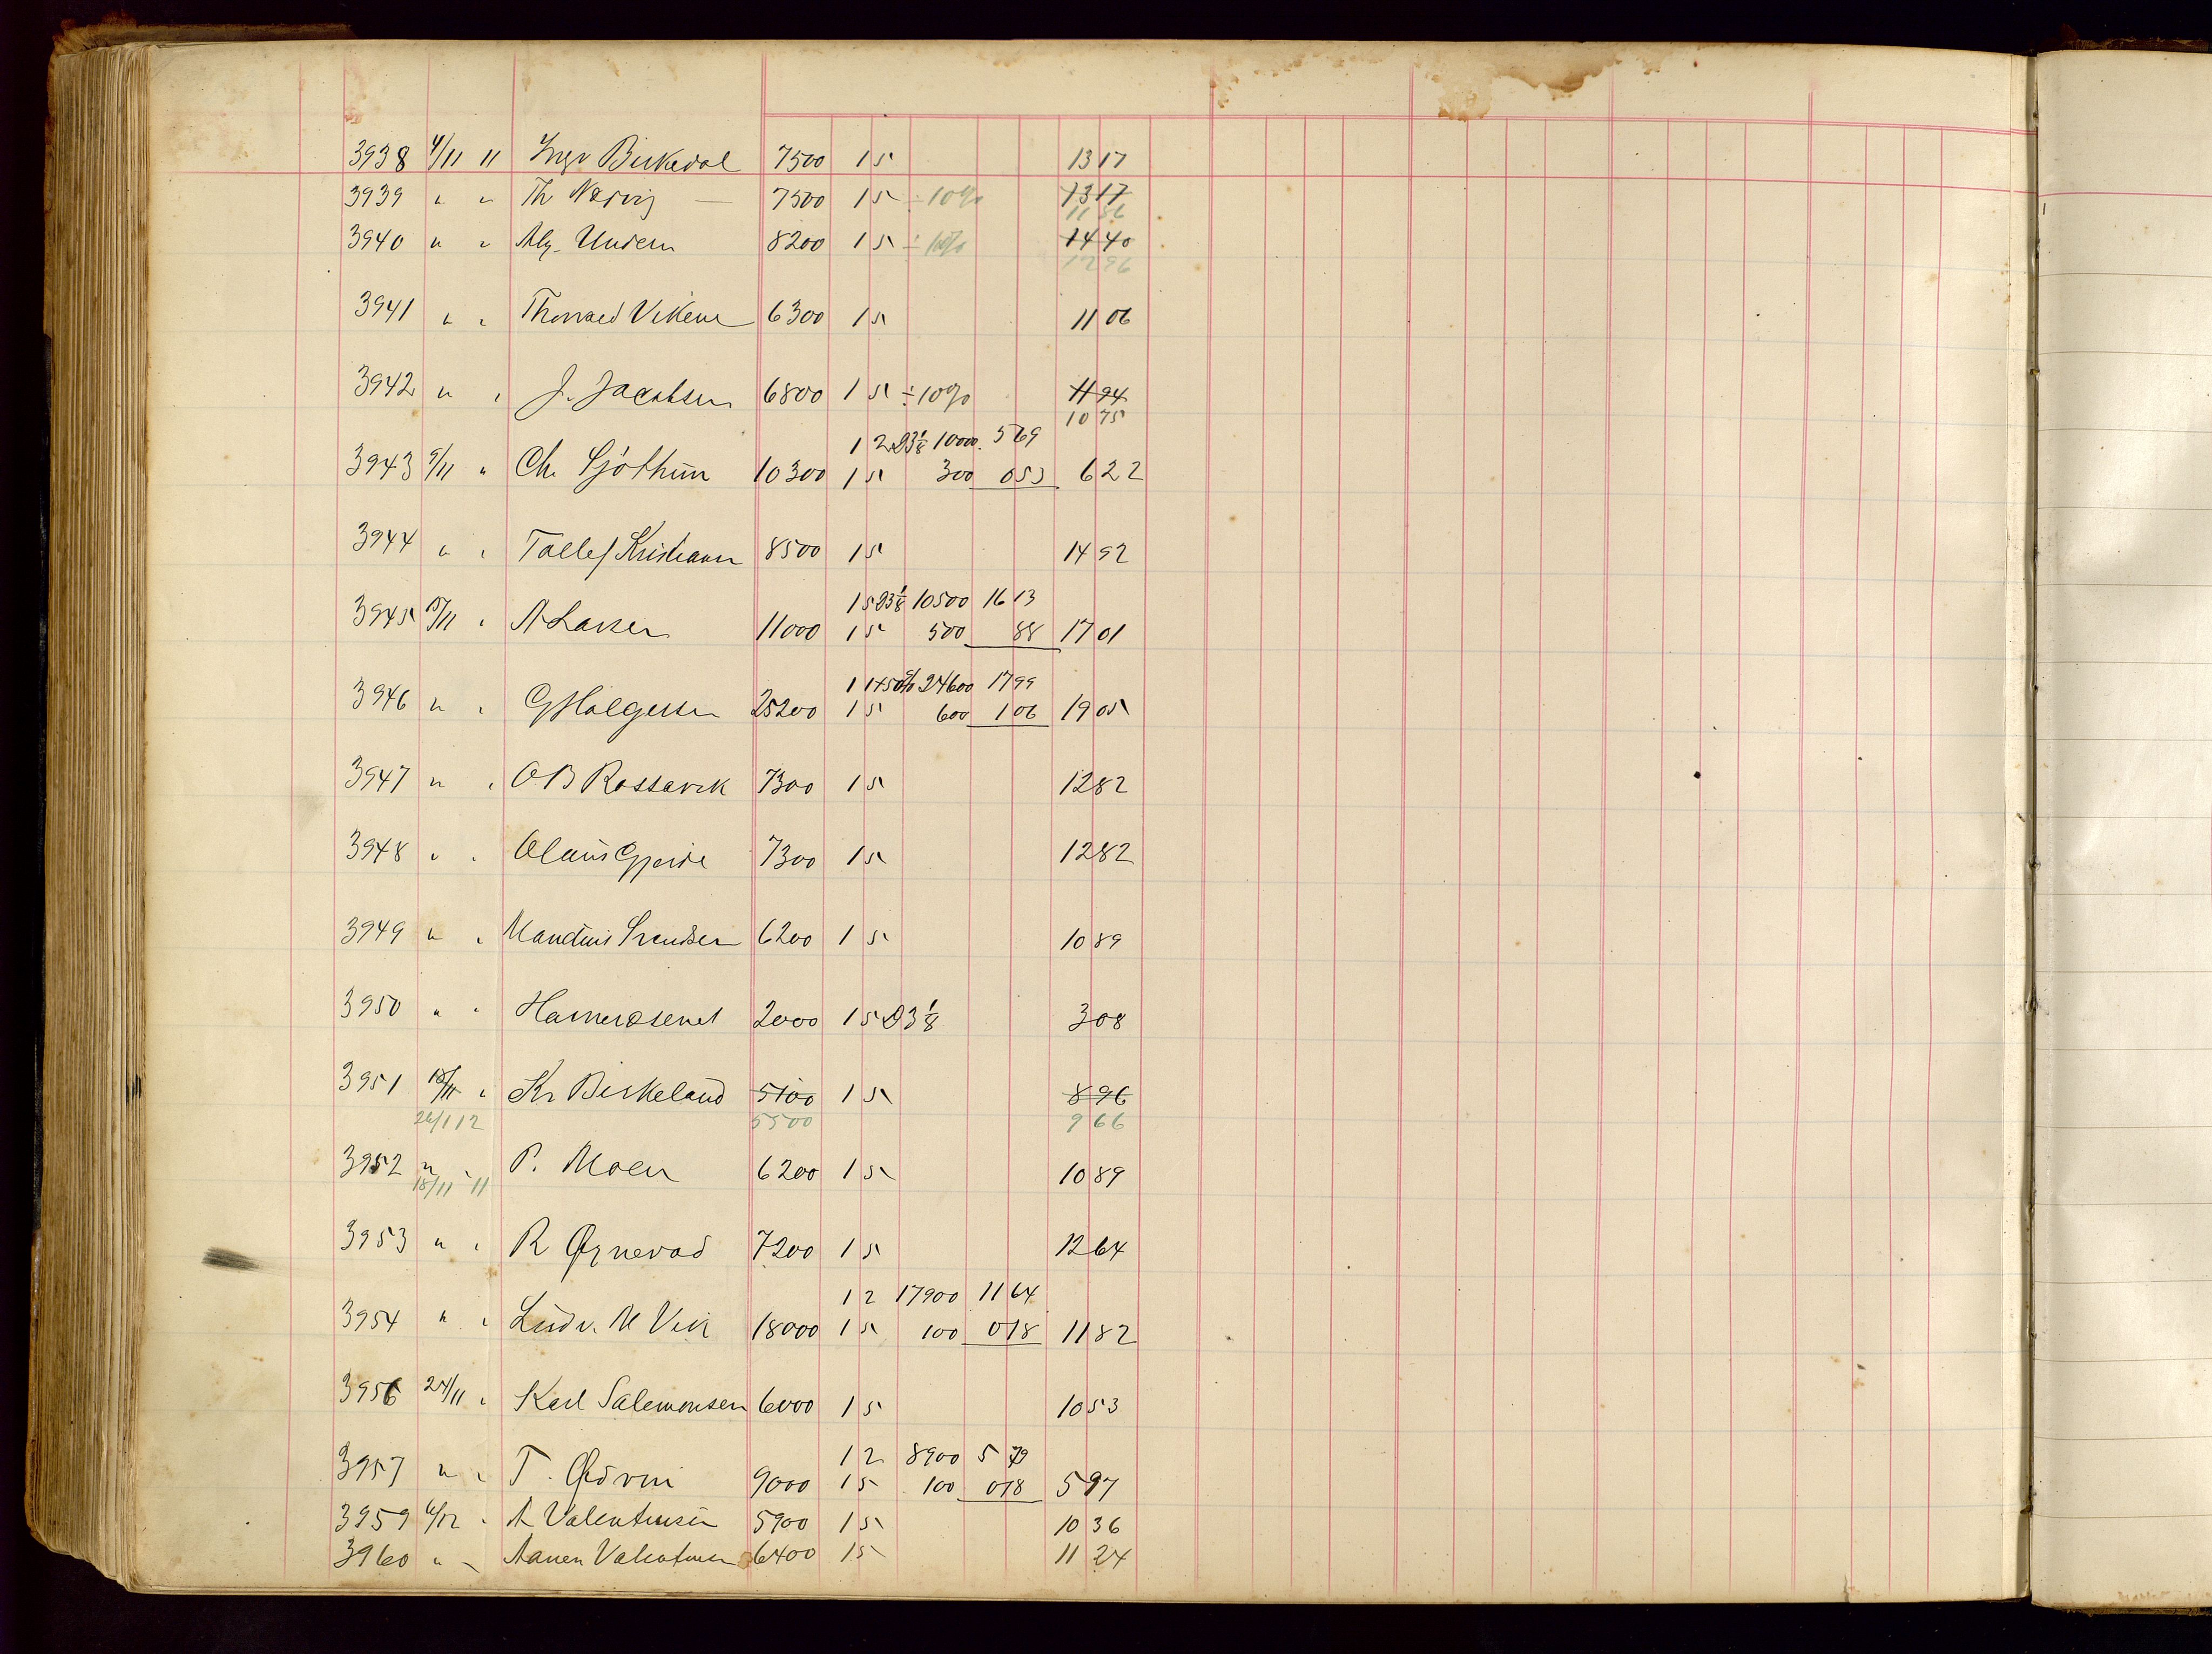 3938 4/11 11 Inga Birkedal 7500 1 5 13 17
3939 " " Th Nærvig — 7500 1 5 ÷ 10% 13 17
11 86
3940 " " Alg. Undem 8200 1 5 ÷ 10% 14 40
12 96
3941 " " Thorvald Vikene 6300 1 5 11 06
3942 " " J. Jacobsen 6800 1 5 ÷ 10% 11 94
10 75
1 2 23⅛ 10000. 5 69
3943 9/11 " Ch. Sjøthun 10300 1 5 300 0 53 6 22
3944 " " Tollef Kristiansen 8500 1 5 14 92
1 5 23⅛ 10500 16 13
3945 15/11 " A Larsen 11000 1 5 500 88 17 01
1 1+50% 24600 17 99
3946 " " G Holgersen 25200 1 5 600 1 06 19 05
3947 " " O. B Rossavik 7300 1 5 12 82
3948 " " Olaus Gjerde 7300 1 5 12 82
3949 " " Mandius Svendsen 6200 1 5 10 89
3950 " " 2000 1 5 23⅛ 3 08
3951 18/11 " Kr Birkeland 5100 1 5 8 96
26/1 12 5500 9 66
3952 " " P. Moen 6200 1 5 10 89
18/11 - 11
3953 " " R Øgnevad 7200 1 5 12 64
1 2 17900 11 64
3954 " " Ludv. M Vik 18000 1 5 100 0 18 11 82
3956 24/11 " Karl Salemonsen 6000 1 5 10 53
1 2 8900 5 79
3957 " " T. 9000 1 5 100 0 18 5 97
3959 6/12 " A Valentinsen 5900 1 5 10 36
3960 " " Aanen Valentinsen 6400 1 5 11 24